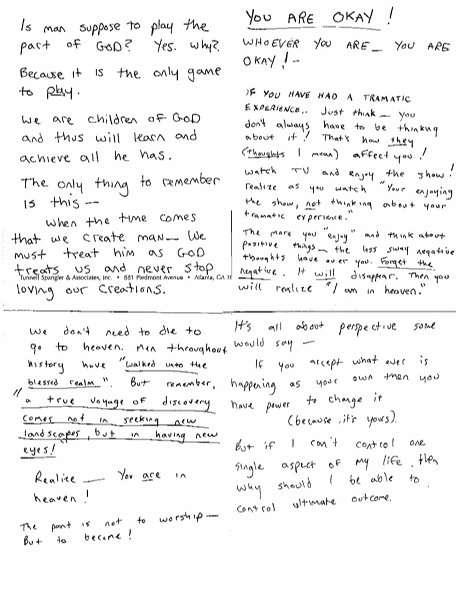 Is man suppose to play the
part of GOD? Yes. Why?
Because it is the only game
to play.
We are children of GOD
and thus will learn and
achieve all he has.
The only thing to remember
is this —
When the time comes
that we create man— We
must treat him as GOD
treats us and never stop
Tunnell Spangler & Associates, Inc. • 881 Piedmont Avenue • Atlanta, GA
loving our creations.
YOU ARE OKAY!
WHOEVER YOU ARE — YOU ARE
OKAY! -
IF YOU HAVE HAD A TRAMATIC
EXPERIENCE.. Just think — you
don't always have to be thinking
about it! That's how they
(thoughts I mean) affect you!
Watch TV and enjoy the show!
Realize as you watch "Your enjoying
the show, not thinking about your
tramatic experience."
The more you "enjoy" and think about
positive things — the less sway negative
thoughts have over you. Forget the
negative. It will disappear. Then you
will realize "I am in heaven."
We don't need to die to
go to heaven. Men throughout
history have "walked into the
blessed realm". But remember,
"a true voyage of discovery
comes not in seeking new
landscapes, but in having new
eyes!
Realize — You are in
heaven!
The point is not to worship —
But to become!
It's all about perspective some
would say —
If you accept what ever is
happening as your own then you
have power to change it
(because it's yours).
But if I can't control one
single aspect of my life, then
why should I be able to
control ultimate outcome.